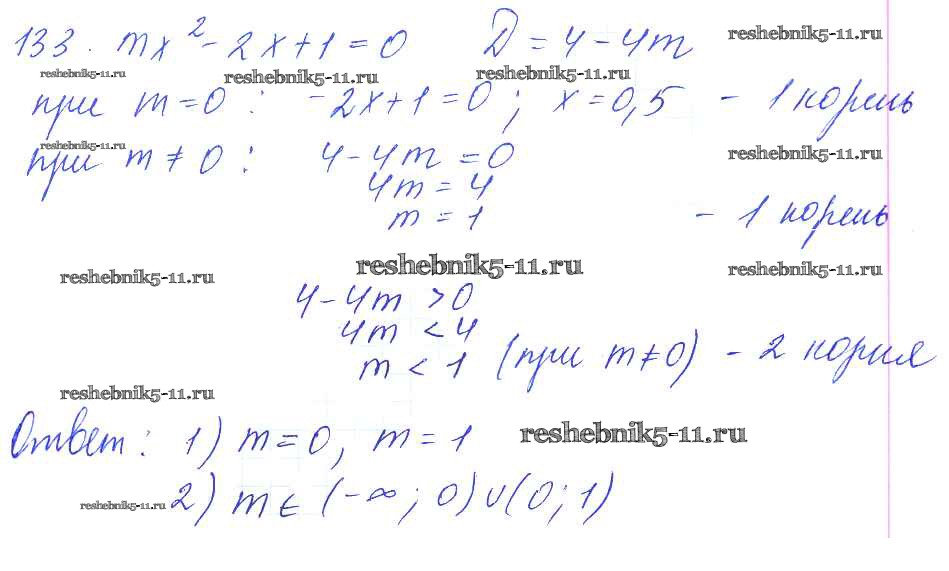 133. mx² - 2x + 1 = 0 D = 4 - 4m reshebnik5-11.ru
reshebnik5-11.ru reshebnik5-11.ru reshebnik5-11.ru
при m = 0 : -2x + 1 = 0 ; x = 0,5 - 1 корень
reshebnik5-11.ru
при m ≠ 0 : 4 - 4m = 0 reshebnik5-11.ru
4m = 4
m = 1 - 1 корень
reshebnik5-11.ru reshebnik5-11.ru reshebnik5-11.ru
4 - 4m > 0
4m < 4
m < 1 (при m ≠ 0) - 2 корня
reshebnik5-11.ru
Ответ : 1) m = 0, m = 1 reshebnik5-11.ru
reshebnik5-11.ru 2) m ∈ (-∞ ; 0) ∪ (0 ; 1)